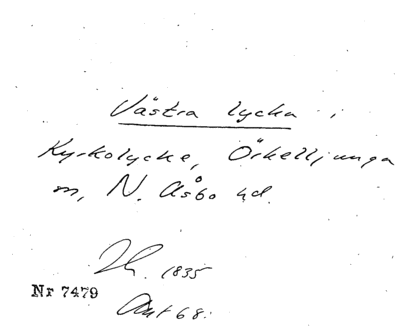 Västra lycka i
Kyrkolycke, Örkelljunga
m, N. Åsbo hd.
1835
Nr 7479
Akt 68.